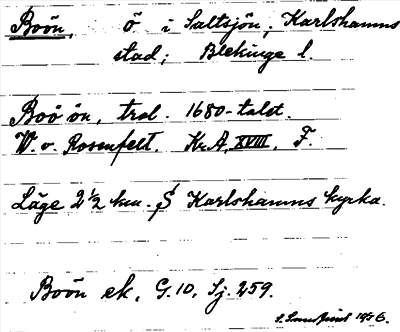 Boön, ö i Saltsjön; Karlshamns
stad; Blekinge l.
Boö ön, trol. 1680-talet.
W. v. Rosenfelt. Kr.A. XVIII. F.
Läge 2½ km. S Karlshamns kyrka.
Boön ek. G.10, Sj. 259.
1956.